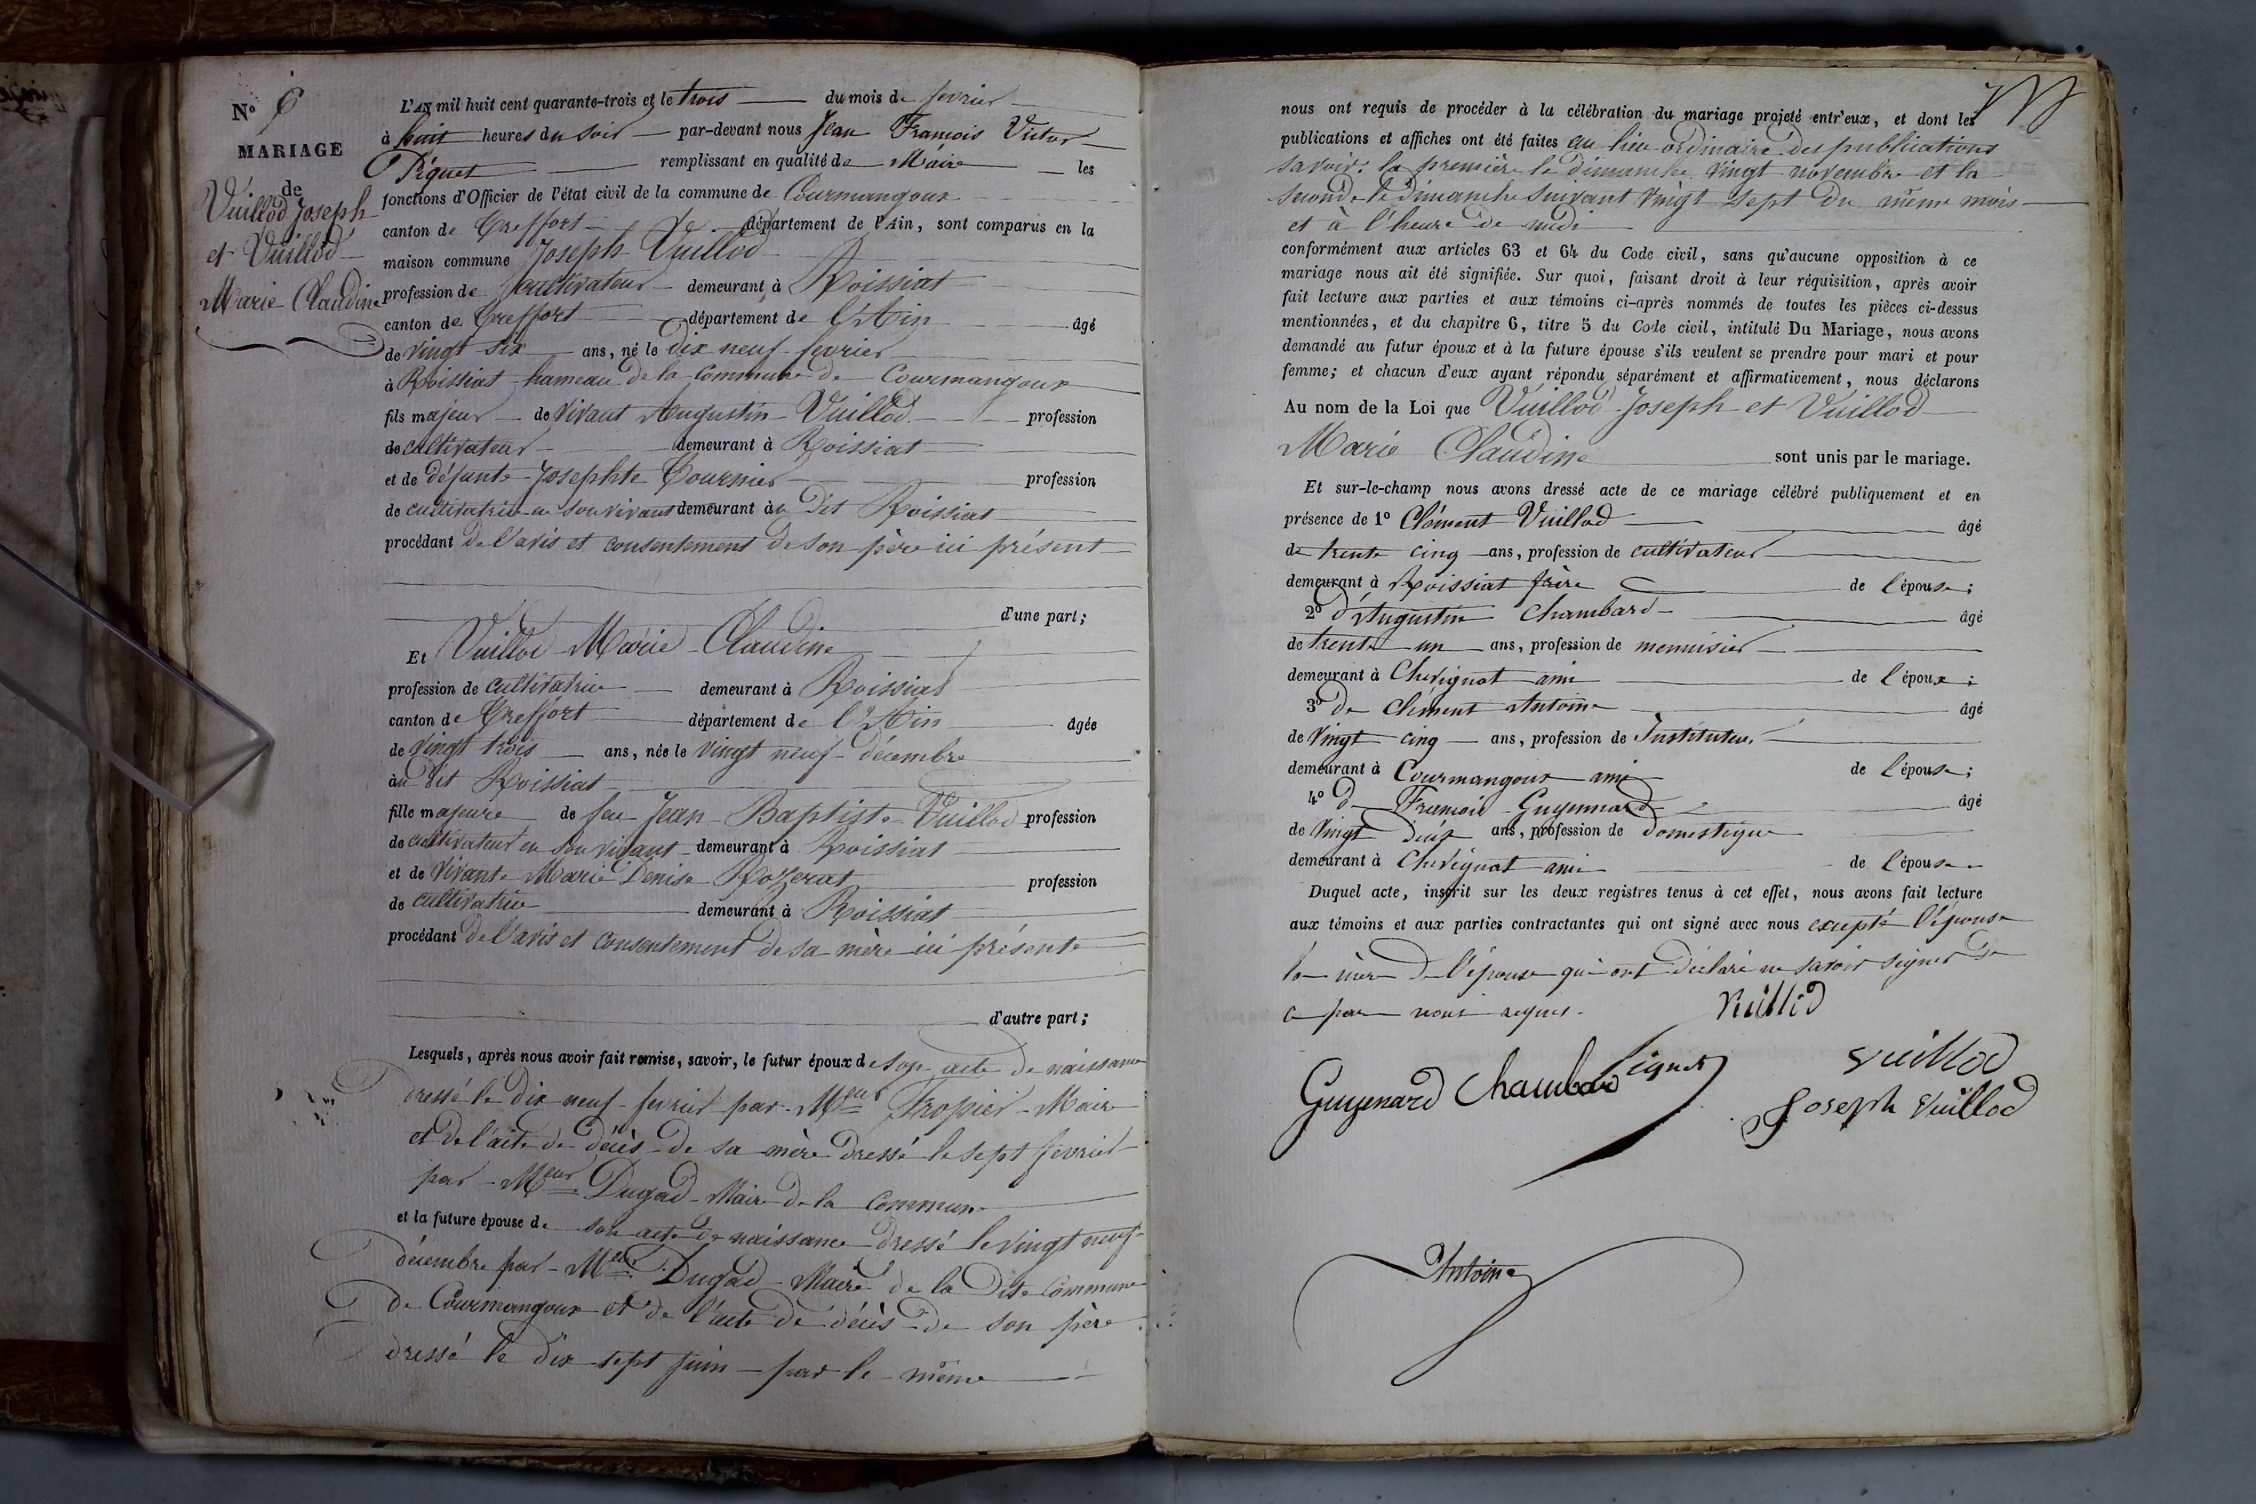 N° 6
MARIAGE
de
Vuillod Joseph
et Vuillod
Marie Claudine
L'An mil huit cent quarante-trois et le trois du mois de fevrier
à huit heures du soir par-devant nous Jean François Victor
Piquet remplissant en qualité de Maire les
fonctions d'Officier de l'état civil de la commune de Courmangoux
canton de Treffort département de l'Ain, sont comparus en la
maison commune Joseph Vuillod
profession de cultivateur demeurant à Roissiat
canton de Treffort département de l'Ain âgé
de vingt six ans, né le dix neuf fevrier
à Roissiat hameau de la commune de Courmangoux
fils majeur de vivant Augustin Vuillod profession
de cultivateur demeurant à Roissiat
et de défunte Josephte Tournier profession
de cultivatrice en son vivant demeurant au dit Roissiat
procédant de l'avis et consentement de son père ici présent
d'une part;
Et Vuillod Marie Claudine
profession de cultivatrice demeurant à Roissiat
canton de Treffort département de l'Ain âgée
de vingt trois ans, née le vingt neuf décembre
au dit Roissiat
fille majeure de feu Jean Baptiste Vuillod profession
de cultivateur en son vivant demeurant à Roissiat
et de vivante Marie Denise Rozerat profession
de cultivatrice demeurant à Roissiat
procédant de l'avis et consentement de sa mère ici présente
d'autre part;
Lesquels, après nous avoir fait remise, savoir, le futur époux de son acte de naissance
dressé le dix neuf fevrier par Meur Tropier Maire
et de l'acte de décès de sa mère dressé le sept fevrier
par Meur Dugad Maire de la commune
et la future épouse de son acte de naissance dressé le vingt neuf
décembre par Meur Dugad Maire de la dite commune
de Courmangoux et de l'acte de décès de son père
dressé le dix sept juin par le même
nous ont requis de procéder à la célébration du mariage projeté entr'eux, et dont les
publications et affiches ont été faites au lieu ordinaire des publications
savoir: la première le dimanche vingt novembre et la
seconde le dimanche suivant vingt sept du même mois
et à l'heure de midi
conformément aux articles 63 et 64 du Code civil, sans qu'aucune opposition à ce
mariage nous ait été signifiée. Sur quoi, faisant droit à leur réquisition, après avoir
fait lecture aux parties et aux témoins ci-après nommés de toutes les pièces ci-dessus
mentionnées, et du chapitre 6, titre 5 du Code civil, intitulé Du Mariage, nous avons
demandé au futur époux et à la future épouse s'ils veulent se prendre pour mari et pour
femme; et chacun d'eux ayant répondu séparément et affirmativement, nous déclarons
Au nom de la Loi que Vuillod Joseph et Vuillod
Marie Claudine sont unis par le mariage.
Et sur-le-champ nous avons dressé acte de ce mariage célébré publiquement et en
présence de 1° Clément Vuillod âgé
de trente cinq ans, profession de cultivateur
demeurant à Roissiat frère de l'épouse;
2° d'Augustin Chambard âgé
de trente un ans, profession de menuisier
demeurant à Chevignat ami de l'époux;
3° de Clément Antoine âgé
de vingt cinq ans, profession de Instituteur
demeurant à Courmangoux ami de l'épouse;
4° de François Guyennard âgé
de vingt deux ans, profession de domestique
demeurant à Chevignat ami de l'épouse
Duquel acte, inscrit sur les deux registres tenus à cet effet, nous avons fait lecture
aux témoins et aux parties contractantes qui ont signé avec nous excepté l'épouse
la mère de l'épouse qui ont déclaré ne savoir signer de
ce par nous requis.
Vuillod
Guyenard Chambard Piquet Vuillod
Joseph Vuillod
Antoine